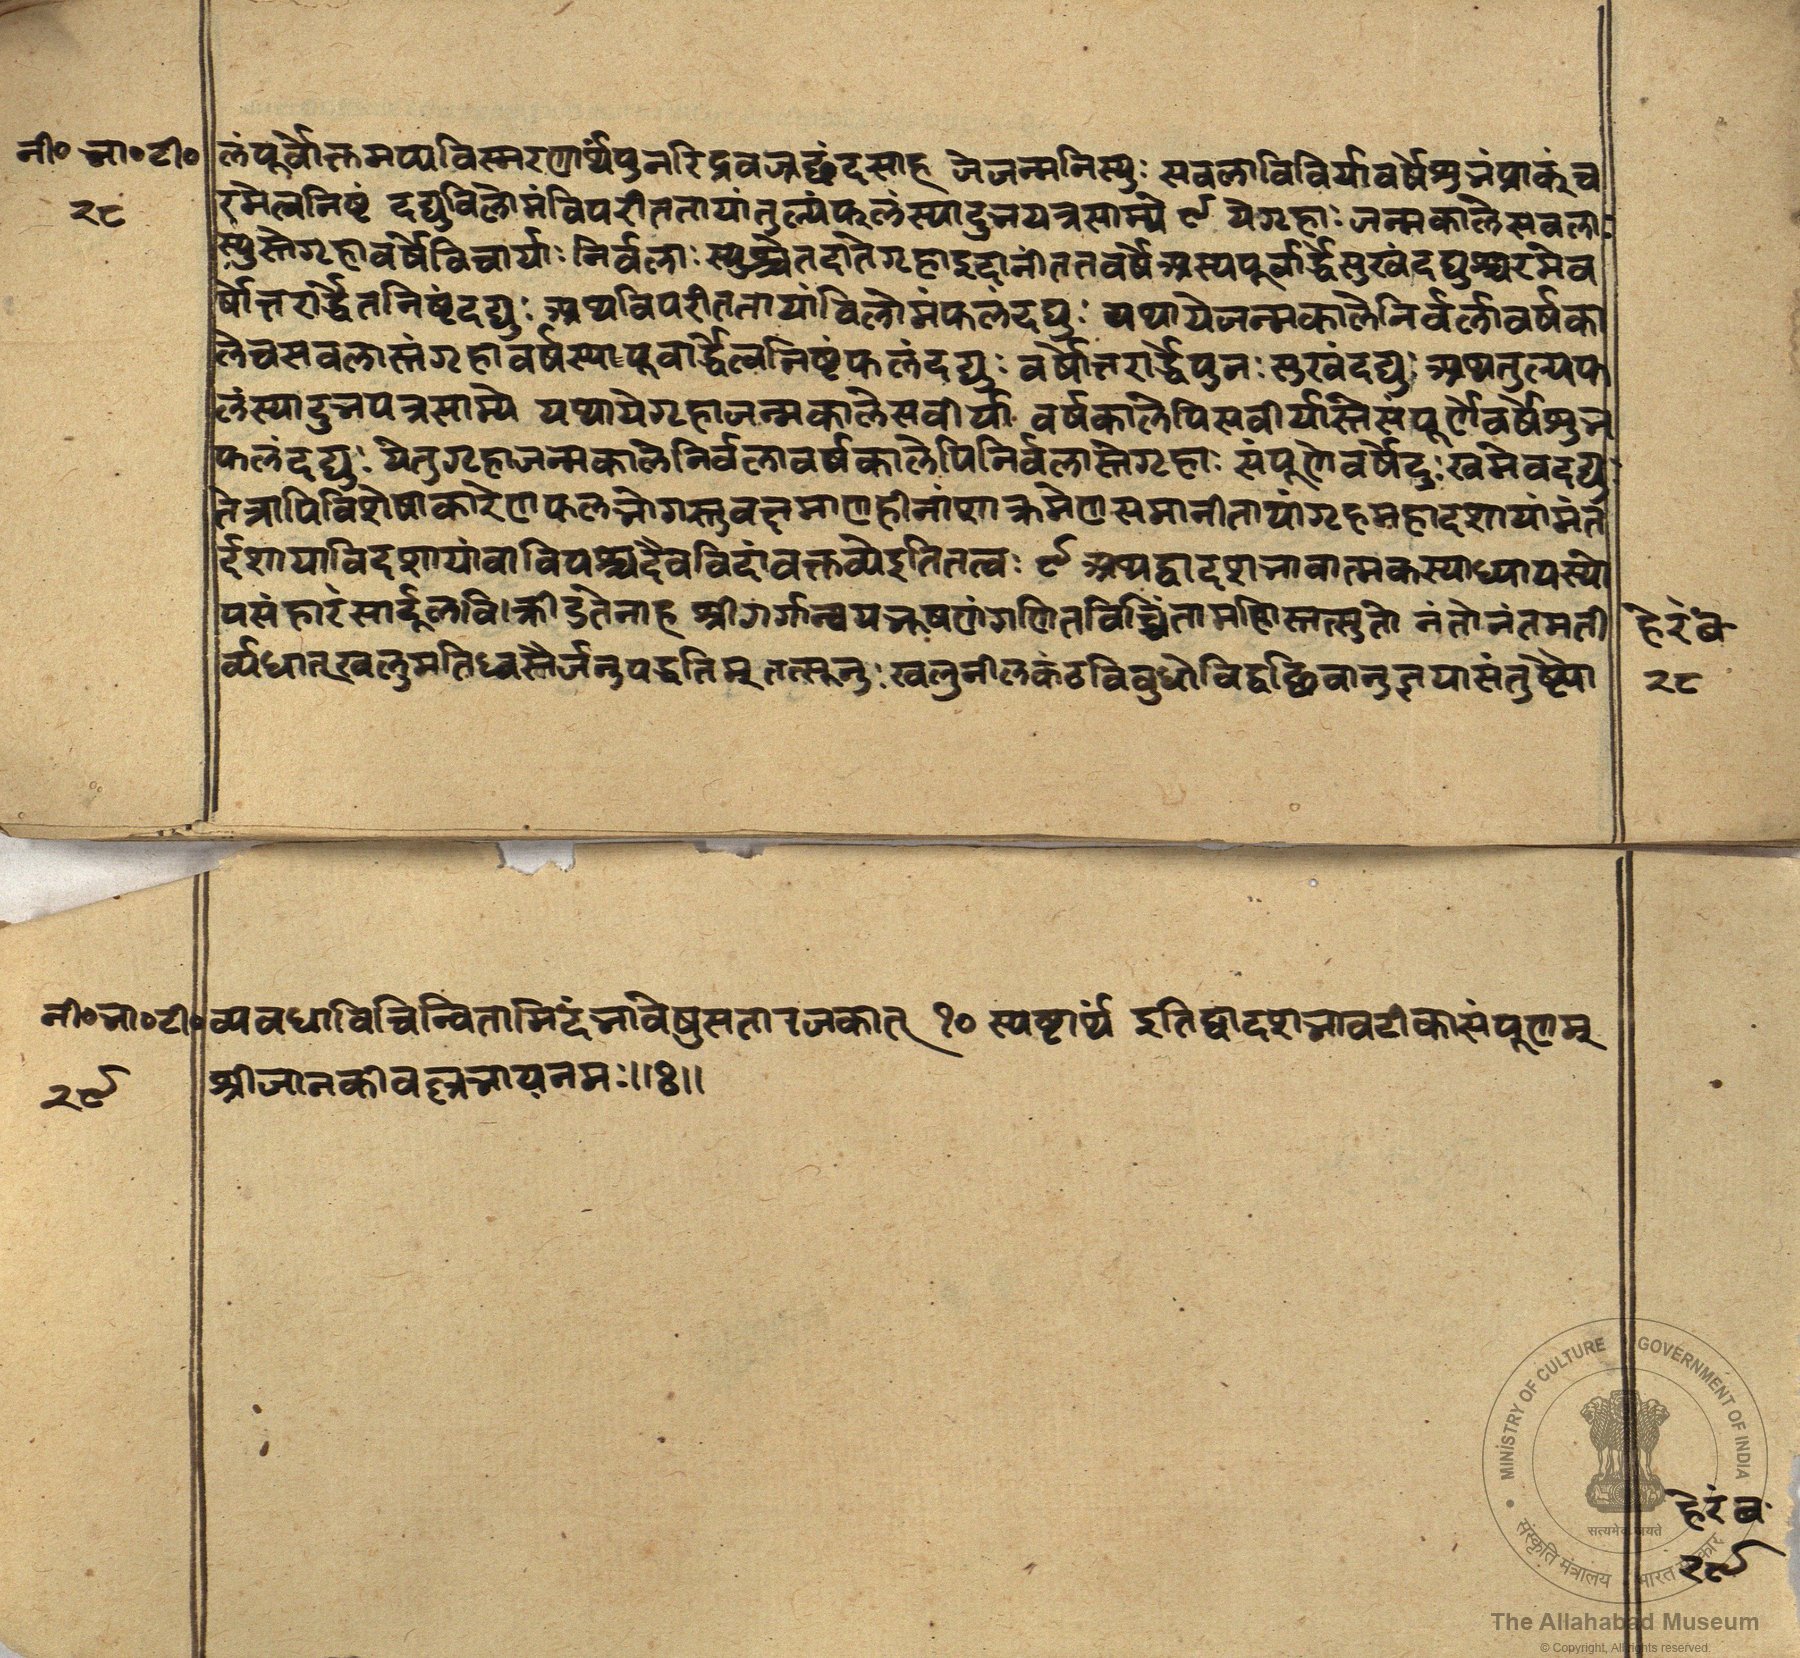 नी० भा० टी०
२८
लंपूर्वोक्तमप्यविस्मरणार्थंपुनरिंद्रवज्रछंदसाह जेजन्मनिस्युः सवलाविविर्यावर्षेशुभंप्राक्चं
रमेत्वनिष्टं दद्युविलोमंविपरीततायांतुल्यंफलंस्यादुभयत्रसाम्ये ९ येगृहाः जन्मकालेसवलाः
स्युस्तेगृहावर्षेविचार्याः निर्वलाः स्युश्चैतदातेगृहाइदानींततवर्षेअस्यपूर्वार्द्धेसुखंदद्युश्चरमेव
र्षोत्तरार्द्धेतनिष्टंदद्युः अथविपरीततायांविलोमंफलंदद्युः यथायेजन्मकालेनिर्वर्लावर्षका
लेचसवलास्तंगृहावर्षस्यापूवार्द्धेत्वनिष्टंफलंदद्युः वर्षोत्तरार्द्धेपुनः सुखंदद्युः अथतुल्यफ
लंस्यादुभयत्रसाम्ये यथायेगृहाजन्मकालेसवीर्या वर्षकालेपिसवीर्यास्तेसंपूर्णेवर्षेशुभ
फलंदद्युः येतुगृहाजन्मकालेनिर्वलावर्षकालेपिनिर्वलास्तेगृहाः संपूर्णेवर्षेदुःखमेवदद्युः
तत्रापिविशेषाकारेणफलभोगस्तुवक्ष्माणहीनांशाक्रमेणसमानीतायांगृहमहादशायांमंत
र्द्दशायाविदशायांवाविपश्च्यदैवविदांवक्तव्येइतितत्वः ९ अथद्वादशभावात्मकस्याध्यायस्यो
पसंहारंसार्दूलविक्रीडतेनाह श्रीगर्गान्वयभूषणंगणितविच्चिंतामणिस्तत्सुतो नंतोनंतमती
र्व्यधातखलुमतिध्वस्तैर्जनुपद्धतिम् तत्सूनुः खलुनीलकंठविवुधोविद्वच्छिवानुज्ञयासंतुष्टैया
हेरंब
२८
नी०भा०टी०
२९
व्यवधाविचिन्वितामिदंभावेषुसताजकात् १० स्पष्टार्थं इतिद्वादशभावटीकासंपूणम्
श्रीजानकीवल्लभायनमः॥॥
हेरंब
२९
MINISTRY OF CULTURE GOVERNMENT OF INDIA
सत्यमेव जयते
संस्कृति मंत्रालय भारत सरकार
The Allahabad Museum
© Copyright, All rights reserved.